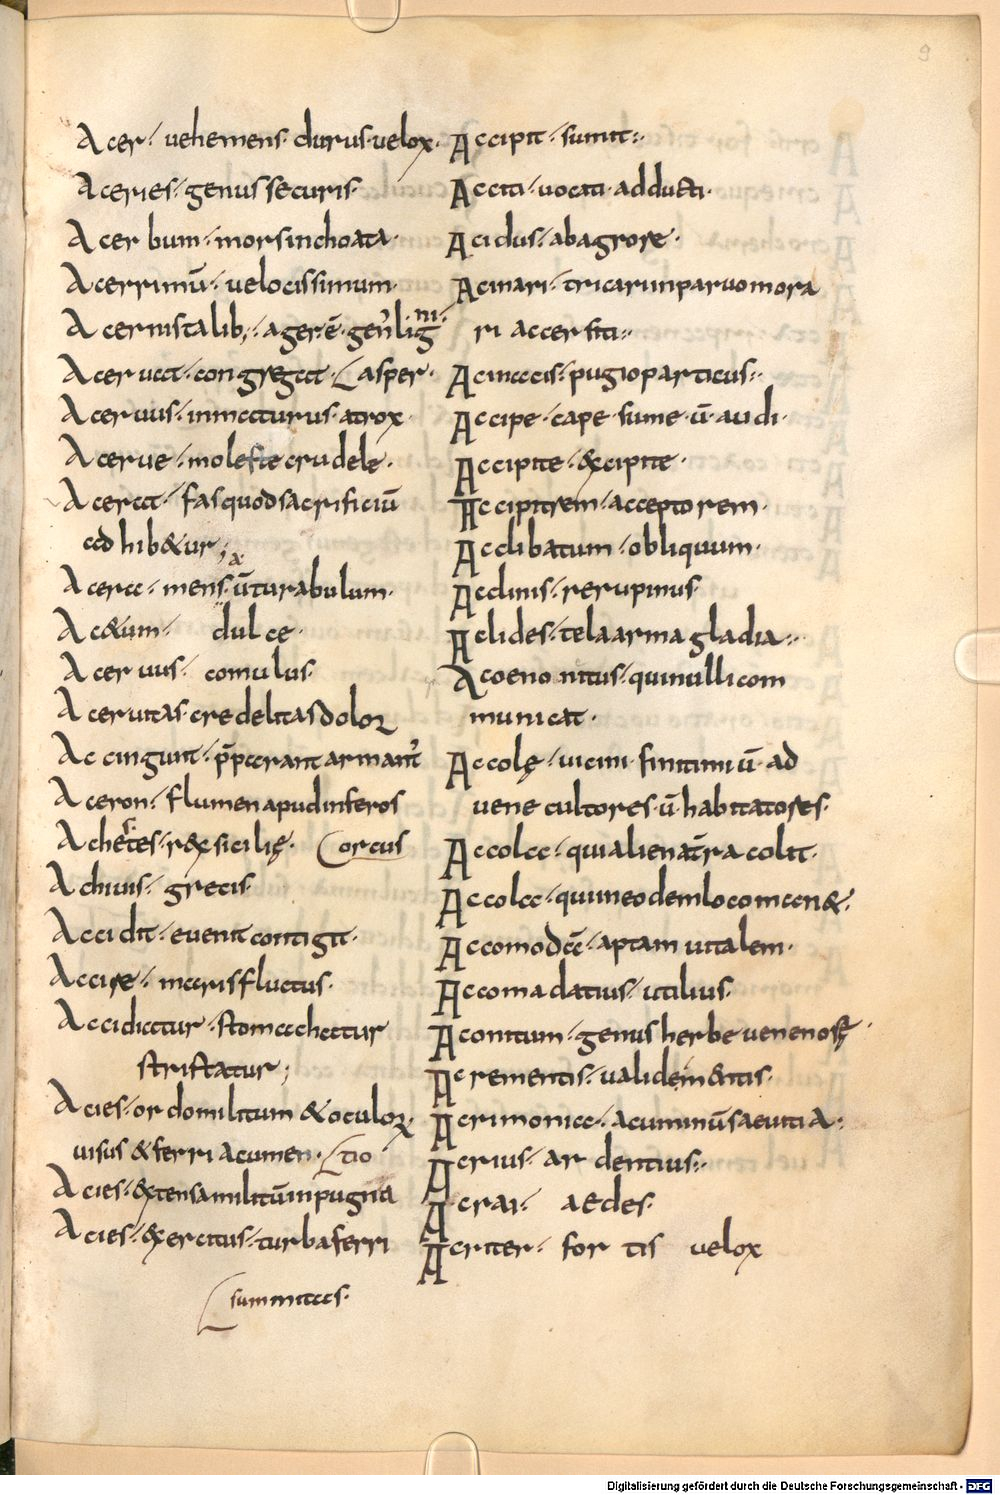 9
Acer· vehemens· durus· velox·
Aceries· genus securis·
Acer bum· mors inchoata·
Acerrimū· velocissimum·
Acernis talib;· ager· ē· gen̄ lig ni·
Acer uat· congregat· asper·
Aceruus· inmaturus· atrox·
Acerue· moleste crudele·
Acerra· fas quod sacrificiū
ad hib&ur;
Acerra· mensa· ū turabulum·
Ac&um· dulce·
Aceruus· comulus·
Aceruitas credelitas dolor
Accingunt· p̄perant armant᷑
Aceron· flumen apud inferos
Achestes· rex sicilię· orcus
Achiuis· grecis·
Accidit· euenit contigit·
Accire· maris fluctus·
Accidiatur· stomachatur
stristatur;
Acies· ordo militum & oculor
uisus & ferri acumen· tio
Acies· extensa militū in pugna
Acies· exercitus· turba ferri
summitas·
Accipit· sumit·
Acciti· uocati· adducti·
Acidus· ab agrore·
Acinari· tricari in paruo mora
ri accersiti·
Acinacis· pugio particus·
Accipe· cape· sume· ū· audi·
Accipite· excipite·
Accipitrem· acceptorem·
Acclibatum· obliquum·
Acclinis· rerupinus·
Aclides· tela arma gladia·
Acoeno nitus· qui nulli com
municat·
Accolę· uicini· finitimi ū· ad
uene cultores· ū· habitatores·
Accola· qui alienā t̄ra colit·
Accola· qui in eodem loco man&·
Accomodā· aptam uitalem·
Accomadatius· utilius·
Aconitum· genus herbe uenenosę·
Acrementis· ualidem&itis·
Acrimonia· acumin ū saeuitia·
Acrius· ardentius·
Acrai· aedes·
Acriter· for tis velox
Digitalisierung gefördert durch die Deutsche Forschungsgemeinschaft - DFG